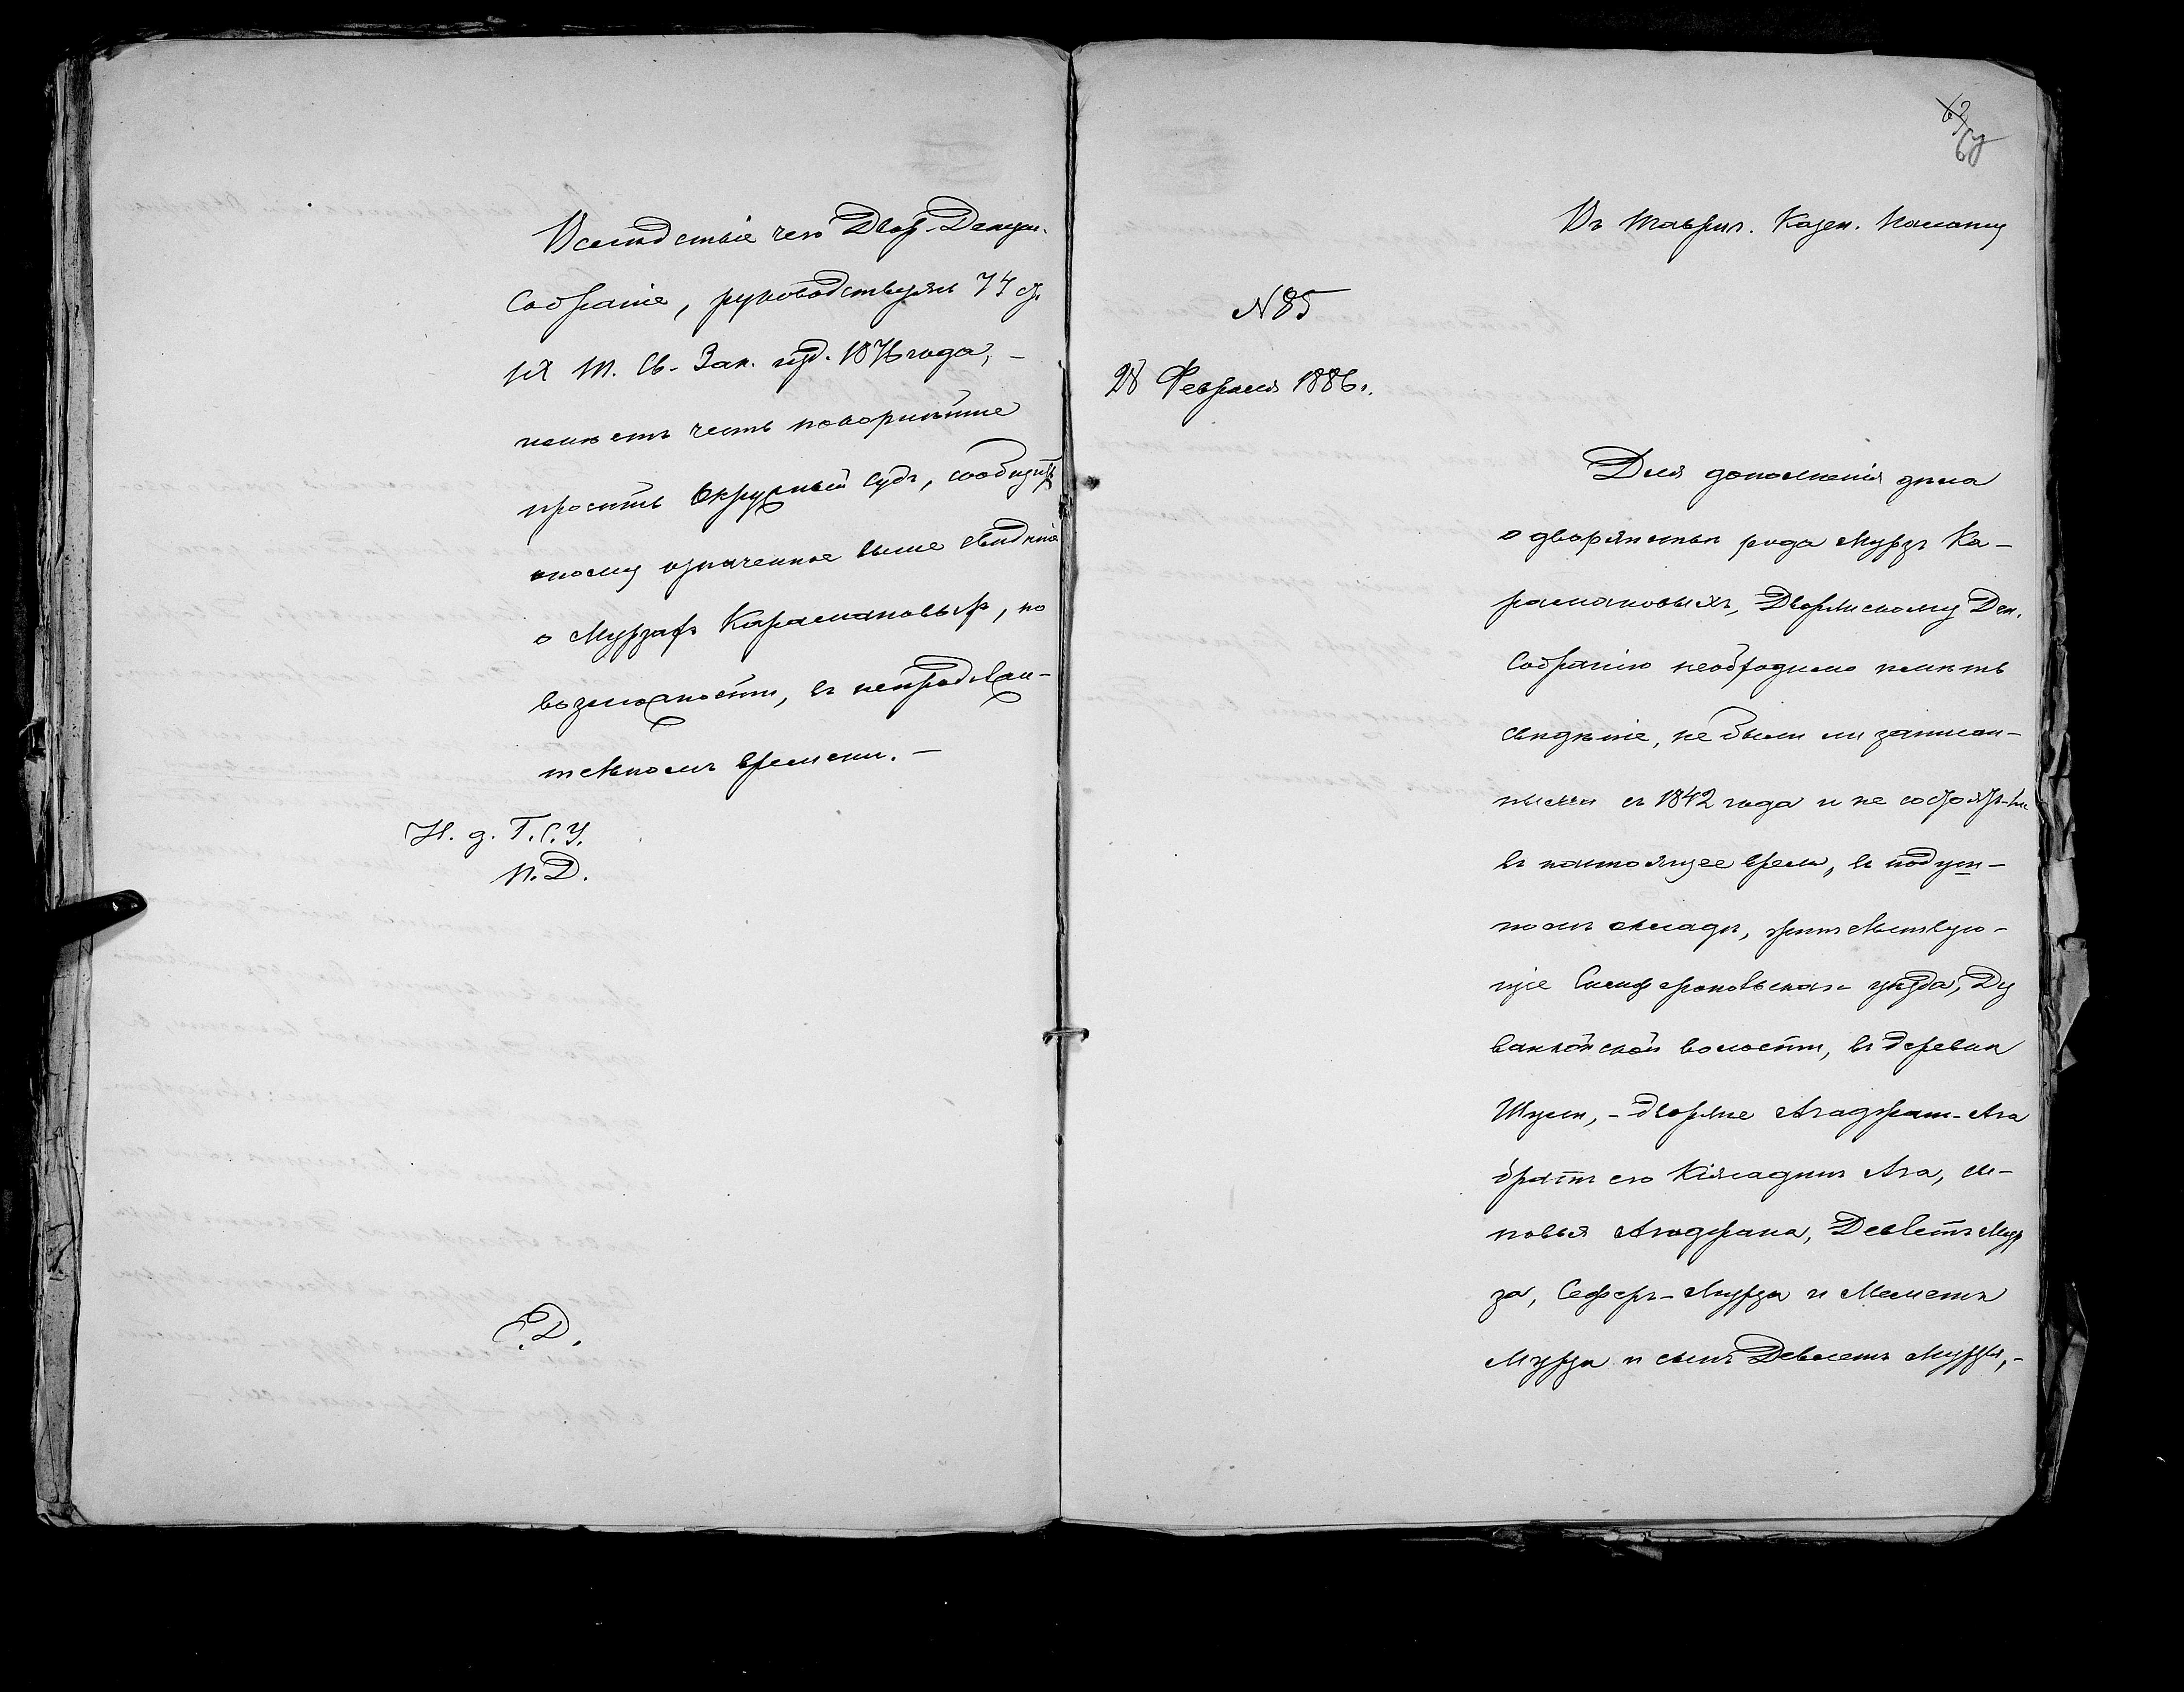 Вслѣдствіе чего Двор. Депут.
Собраніе, руководствуясь 74 ст.
IX т. Св. Зак. изд. 1876 года, –
имѣетъ честь покорнѣйше
просить Окружный Судъ, сообщить
оному означенное выше свѣдѣніе
о Мурзахъ Карамановыхъ, по
возможности, въ непродолжи-
тельномъ времени. –
И. д. Г. С. У.
П. Д.
С. Д.
63
64
Въ Таврич. Казен. Палату
N 85
28 Февраля 1886 г.
Для дополненія дѣла
о дворянствѣ рода Мурзъ Ка-
рамановыхъ, Дворянскому Деп.
Собранію необходимо имѣть
свѣдѣніе, не были ли записан-
ными съ 1842 года и не состоятъ-ли
въ настоящее время, въ подуш-
номъ окладѣ, жительствую-
щіе Симферопольскаго уѣзда, Ду
ванкойской волости, въ деревнѣ
Шули, – дворяне Агаджан-Ага
братъ его Ага, сы-
новья Агаджана, Девлетъ Мур
за, Сеферъ-Мурза и Меметъ
Мурза и сынъ Девлетъ Мурзы, –